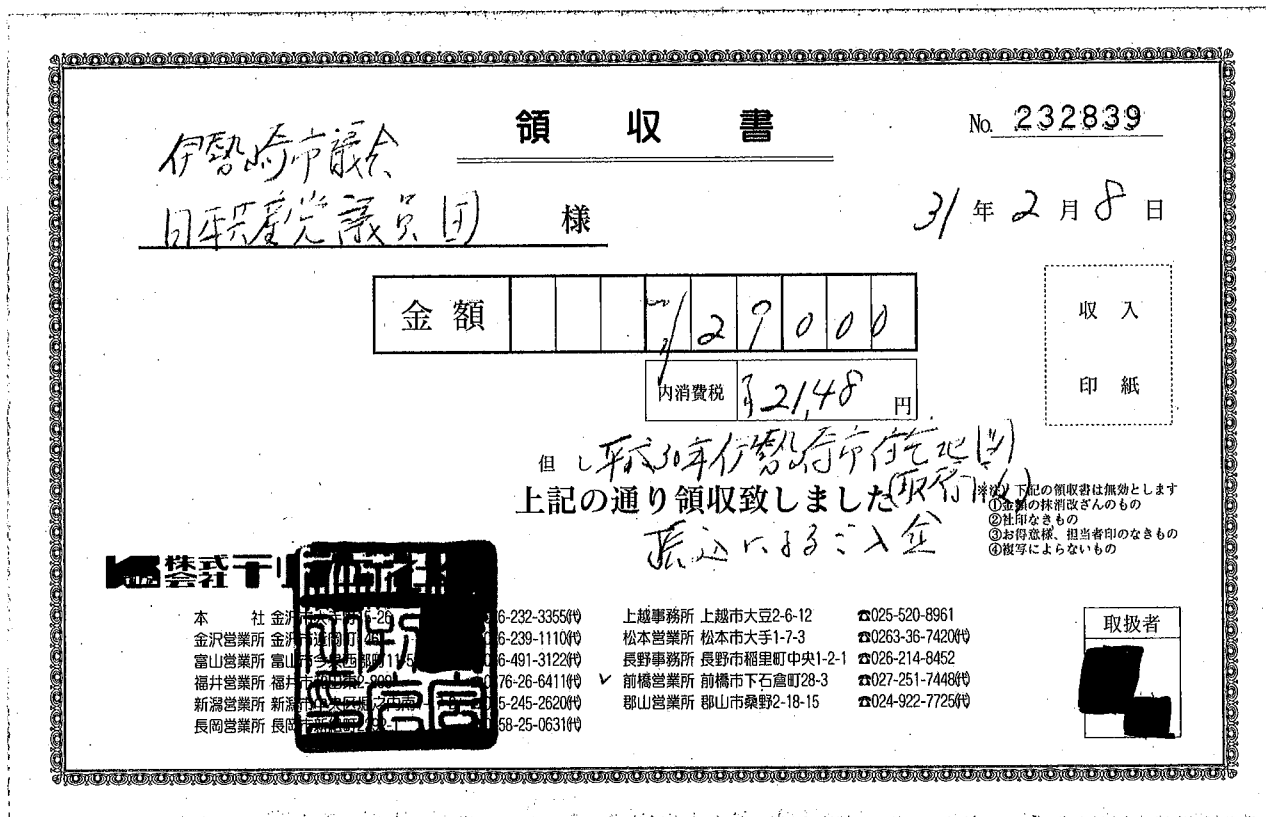 領収書
No. 232839
伊勢崎市議会
日本共産党議員団 様
31年2月8日
金額 129000
収入
印紙
内消費税 2,148 円
但し 平成30年伊勢崎市住宅地図
上記の通り領収致しました
振込によるご入金
※注)下記の領収書は無効とします
①金額の抹消改ざんのもの
②社印なきもの
③お得意様、担当者印のなきもの
④複写によらないもの
株式会社
本社 金沢市 6-232-3355㈹
金沢営業所 金沢市 6-239-1110㈹
富山営業所 富山市 6-491-3122㈹
福井営業所 福井市 76-26-6411㈹
新潟営業所 新潟市 5-245-2620㈹
長岡営業所 長岡市 58-25-0631㈹
上越事務所 上越市大豆2-6-12 ☎025-520-8961
松本営業所 松本市大手1-7-3 ☎0263-36-7420㈹
長野事務所 長野市稲里町中央1-2-1 ☎026-214-8452
✓ 前橋営業所 前橋市下石倉町28-3 ☎027-251-7448㈹
郡山営業所 郡山市桑野2-18-15 ☎024-922-7725㈹
取扱者